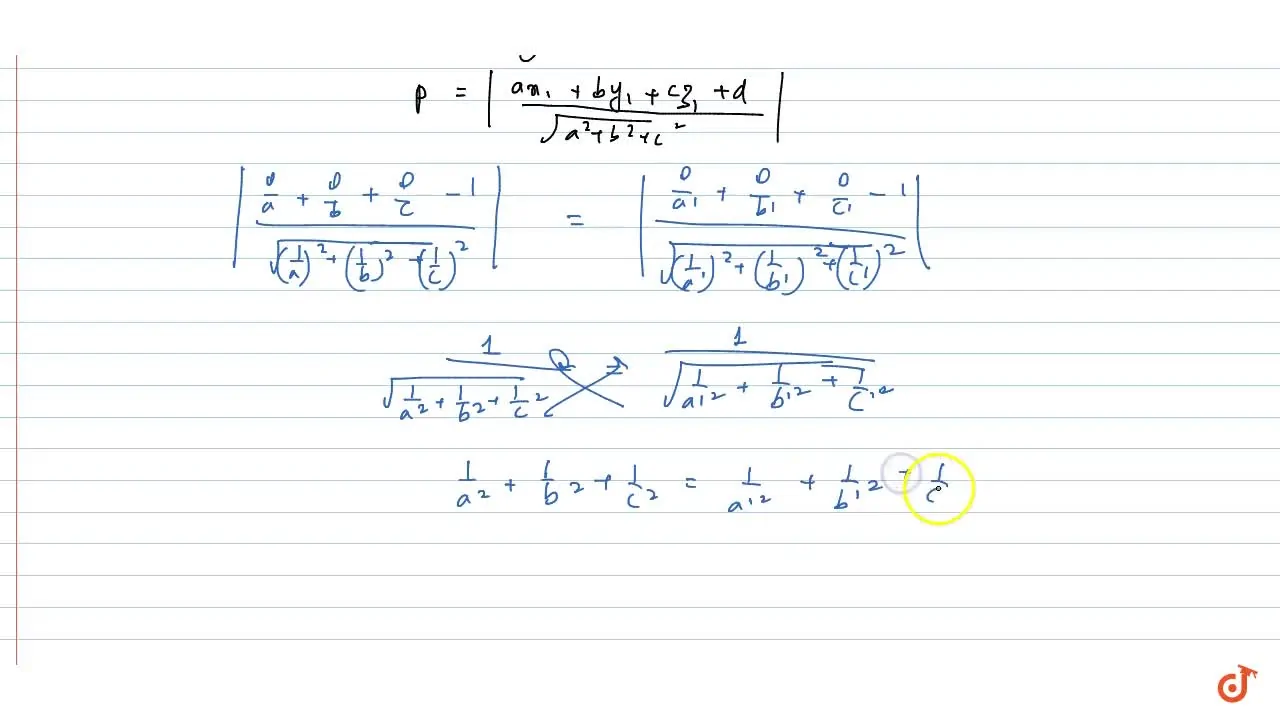 p = | (ax₁ + by₁ + cz₁ + d) / √(a² + b² + c²) |
| (0/a + 0/b + 0/c - 1) / √((1/a)² + (1/b)² + (1/c)²) | = | (0/a' + 0/b' + 0/c' - 1) / √((1/a')² + (1/b')² + (1/c')²) |
1 / √(1/a² + 1/b² + 1/c²) 1 / √(1/a'² + 1/b'² + 1/c'²)
1/a² + 1/b² + 1/c² = 1/a'² + 1/b'² + 1/c